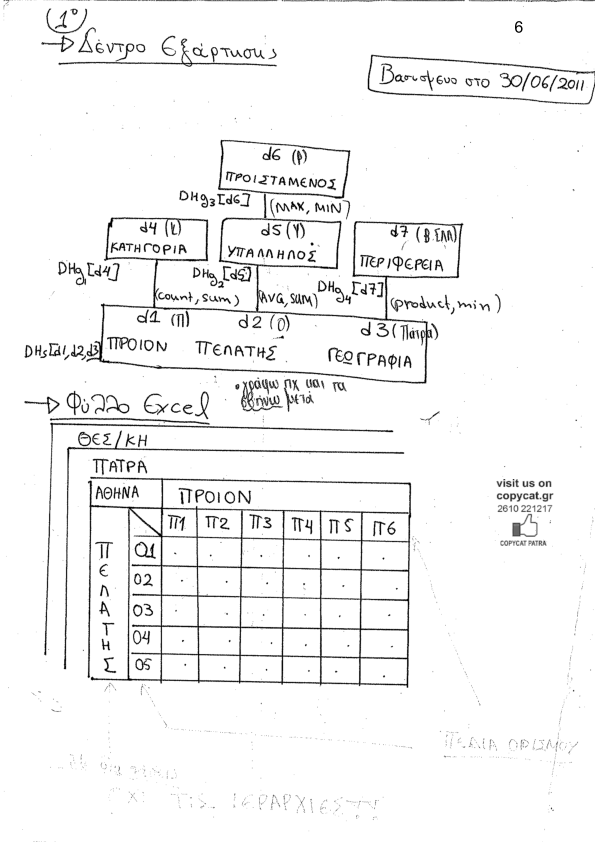 (1º)
6
→ Δέντρο Εξάρτησης
Βασισμένο στο 30/06/2011
d6 (Β)
ΠΡΟΙΣΤΑΜΕΝΟΣ
DHg3[d6]
(MAX, MIN)
d4 (Κ)
ΚΑΤΗΓΟΡΙΑ
d5 (Υ)
ΥΠΑΛΛΗΛΟΣ
d7 (Β.ΕΛΛ)
ΠΕΡΙΦΕΡΕΙΑ
DHg1[d4]
(count, sum)
DHg2[d5]
(AVG, SUM)
DHg4[d7]
(product, min)
d1 (Π) d2 (Ο) d3 (Πάτρα)
DHs[d1,d2,d3]
ΠΡΟΙΟΝ ΠΕΛΑΤΗΣ ΓΕΩΓΡΑΦΙΑ
• γράφω πχ και τα
σβήνω μετά
→ Φύλλο Excel
ΘΕΣ/ΚΗ
ΠΑΤΡΑ
ΑΘΗΝΑ ΠΡΟΙΟΝ
Π1 Π2 Π3 Π4 Π5 Π6
ΠΕΛΑΤΗΣ
01
02
03
04
05
visit us on
copycat.gr
2610 221217
COPYCAT PATRA
ΠΕΔΙΑ ΟΡΙΣΜΟΥ
ΤΙΣ ΙΕΡΑΡΧΙΕΣ!!